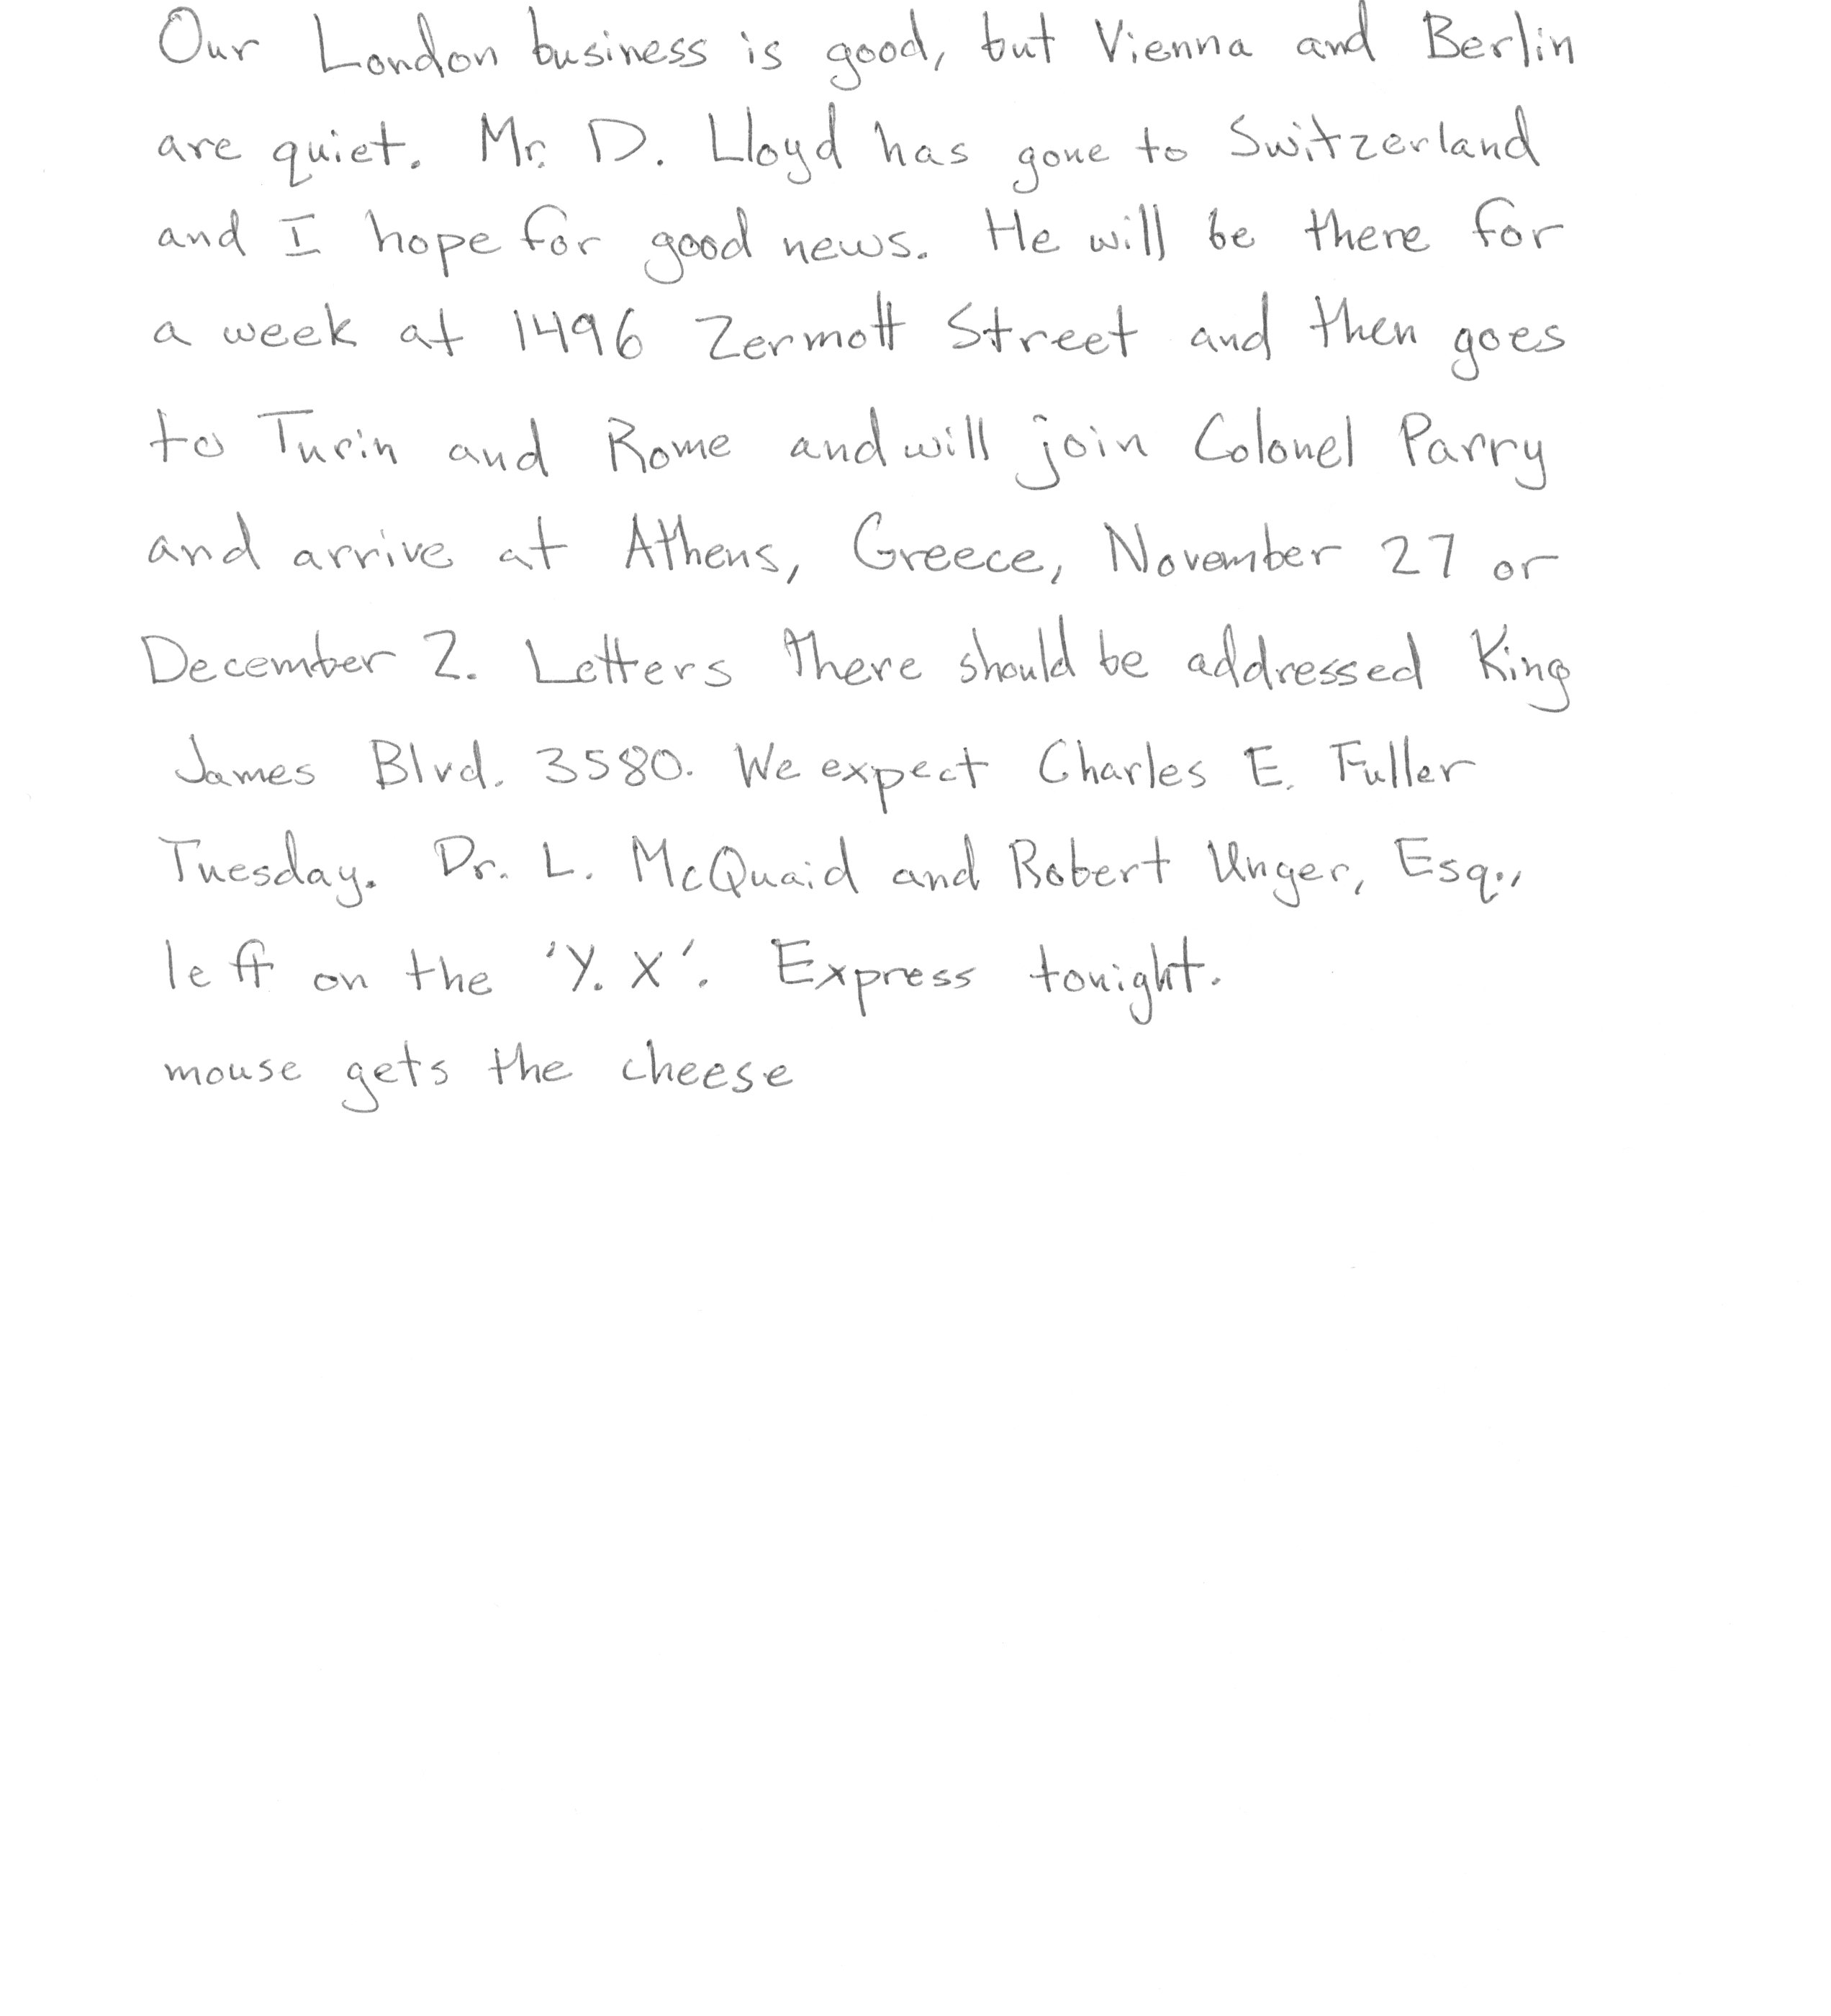 Our London business is good, but Vienna and Berlin
are quiet. Mr. D. Lloyd has gone to Switzerland
and I hope for good news. He will be there for
a week at 1496 Zermott Street and then goes
to Turin and Rome and will join Colonel Parry
and arrive at Athens, Greece, November 27 or
December 2. Letters there should be addressed King
James Blvd. 3580. We expect Charles E. Fuller
Tuesday. Dr. L. McQuaid and Robert Unger, Esq.,
left on the 'Y. X'. Express tonight.
mouse gets the cheese